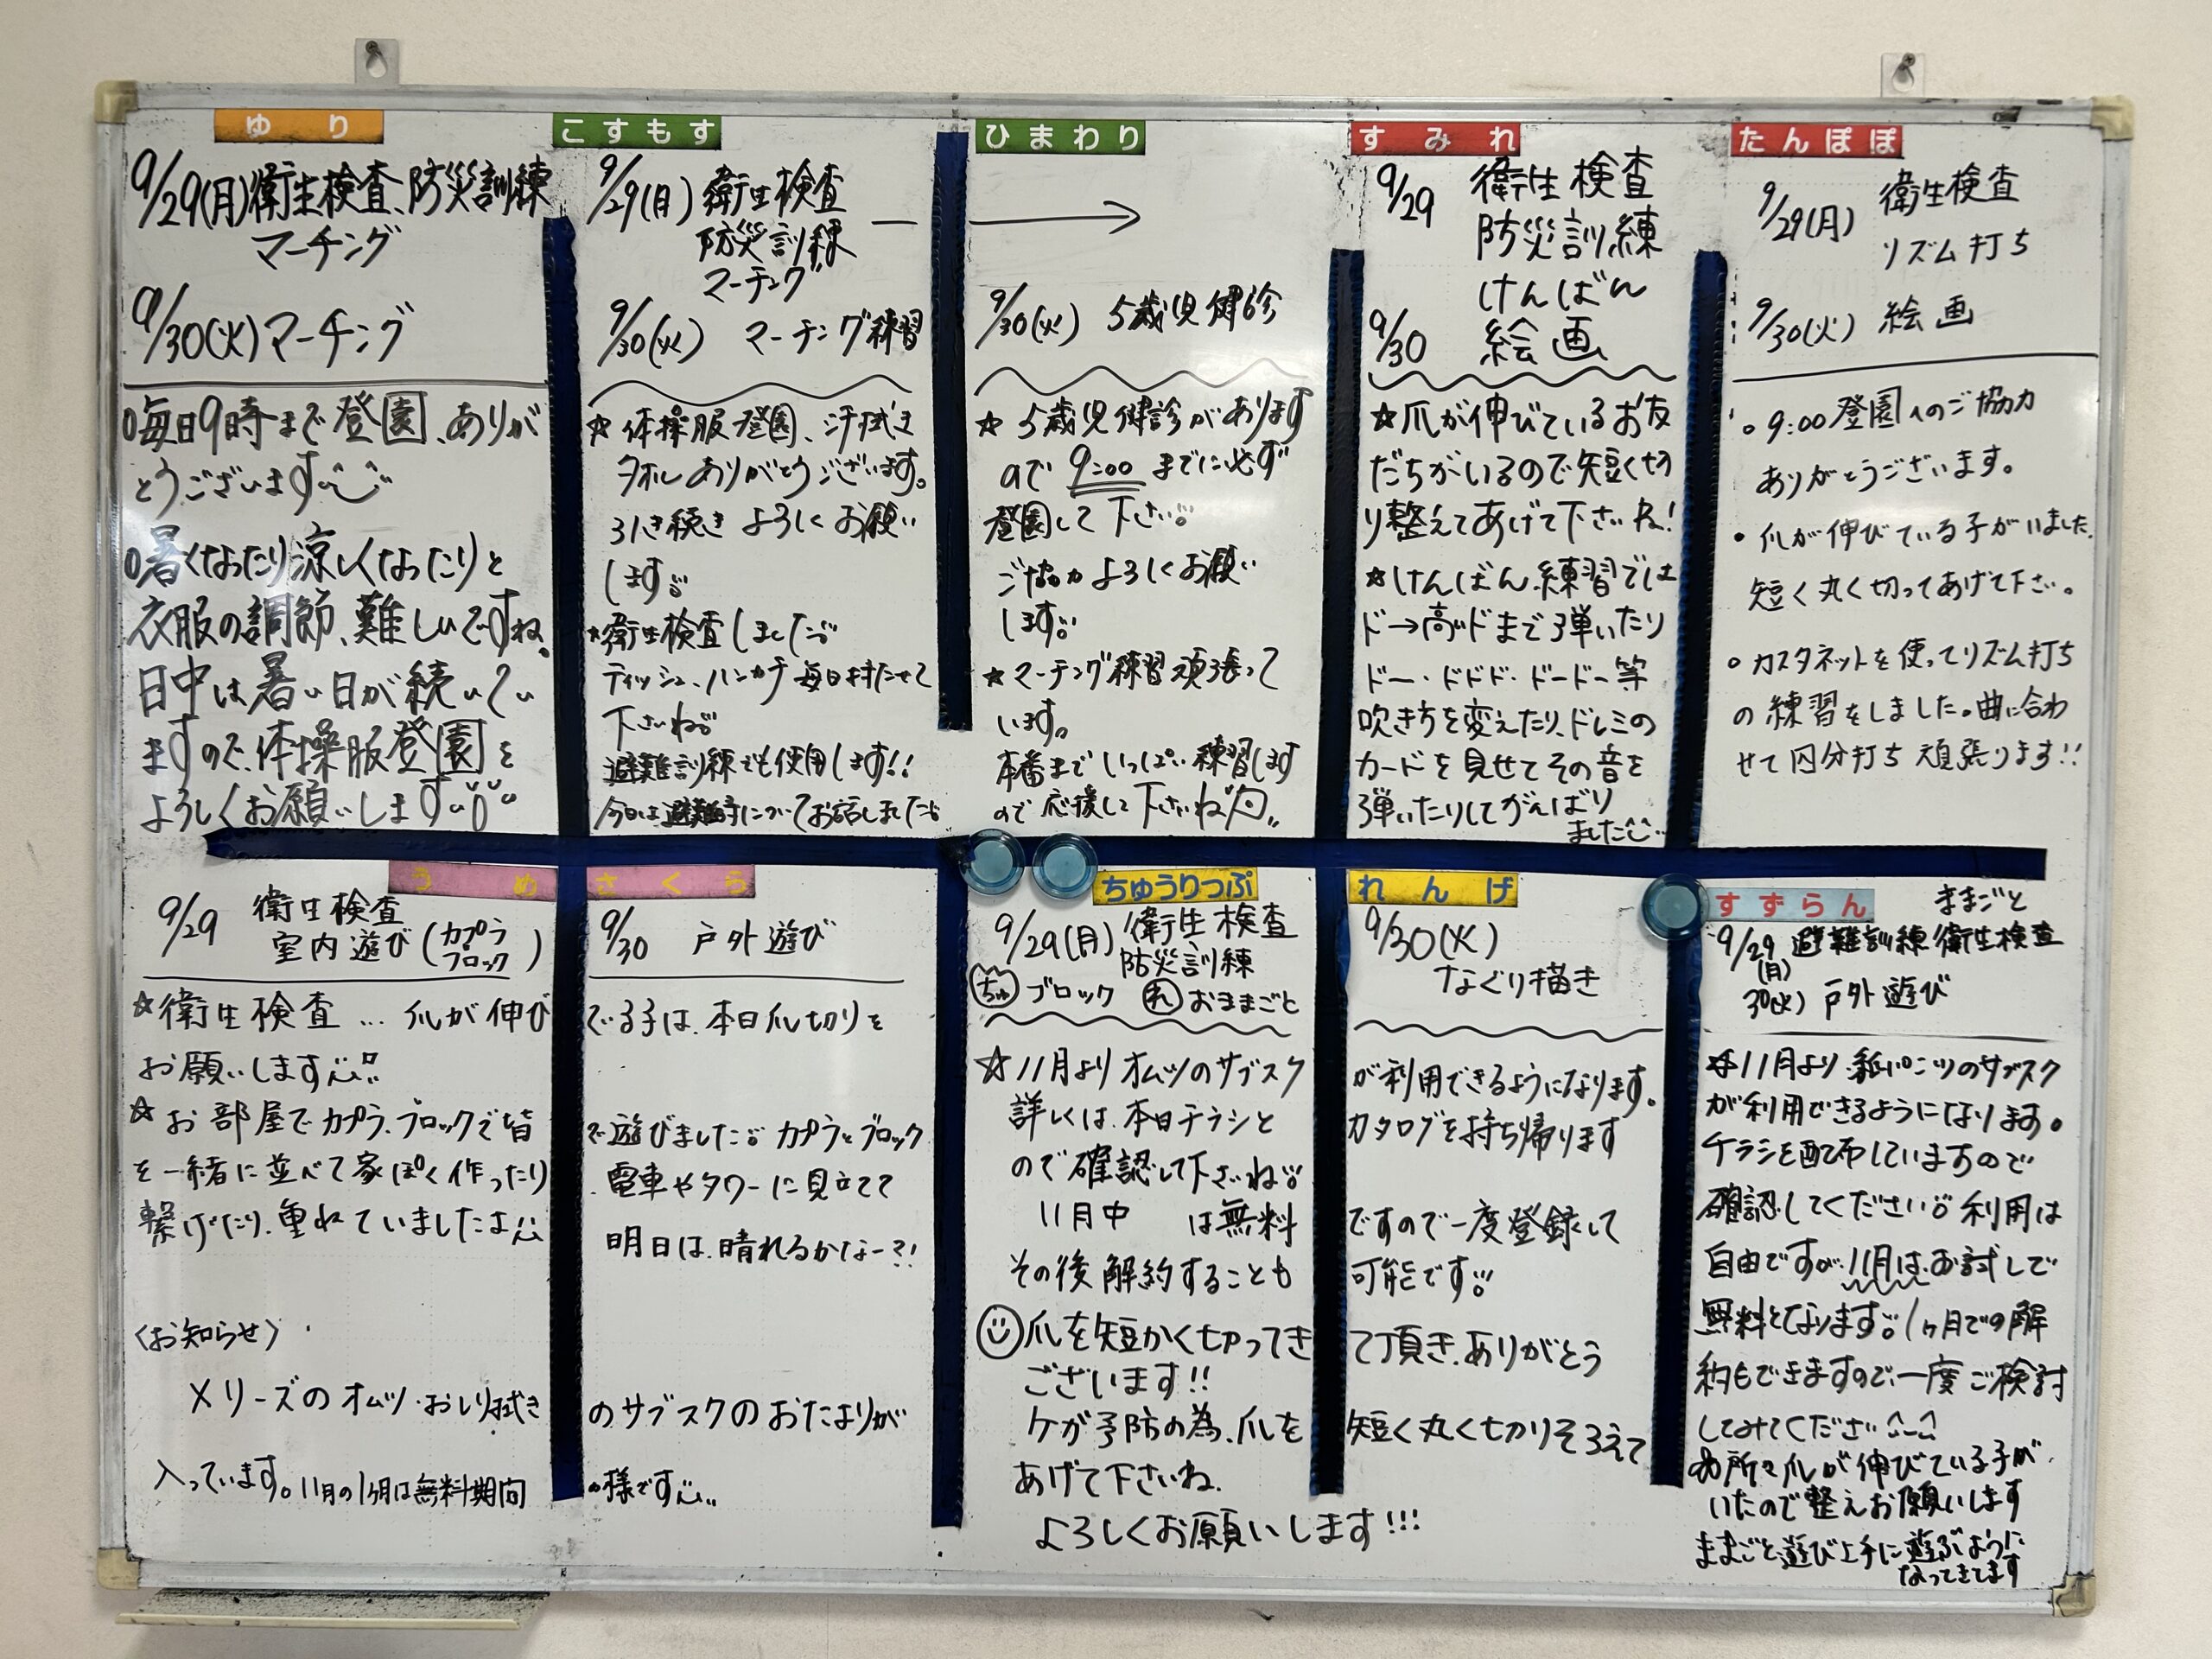 ゆり
9/29(月)衛生検査、防災訓練
マーチング
9/30(火)マーチング
○毎日9時まで登園、ありが
とうございます
○暑くなったり涼しくなったりと
衣服の調節、難しいですね。
日中は暑い日が続いてい
ますので、体操服登園を
よろしくお願いします
こすもす
9/29(月)衛生検査
防災訓練
マーチング
9/30(火) マーチング練習
☆体操服登園、汗拭き
タオルありがとうございます。
引き続きよろしくお願い
します
☆衛生検査しました
ティッシュ、ハンカチ毎日持たせて
下さいね
避難訓練でも使用します!!
今日は避難時についてお話しました
ひまわり
→
9/30(火) 5歳児健診
☆5歳児健診があります
ので9:00までに必ず
登園して下さい
ご協力よろしくお願い
します
☆マーチング練習頑張って
います。
本番までいっぱい練習します
ので応援して下さいね
すみれ
9/29 衛生検査
防災訓練
けんばん
9/30 絵画
☆爪が伸びているお友
だちがいるので短く切
り整えてあげて下さいね!
☆けんばん練習では
ド→高いドまで弾いたり
ドー・ドドド・ドードー等
吹き方を変えたり、ドレミの
カードを見せてその音を
弾いたりしてがんばり
ました
たんぽぽ
9/29(月) 衛生検査
リズム打ち
9/30(火) 絵画
○9:00登園へのご協力
ありがとうございます。
・爪が伸びている子がいました。
短く丸く切ってあげて下さい。
○カスタネットを使ってリズム打ち
の練習をしました。曲に合わ
せて四分打ち頑張ります!!
うめ さくら
9/29 衛生検査
室内遊び(カプラ
ブロック)
9/30 戸外遊び
☆衛生検査…爪が伸びてる子は、本日爪切りを
お願いします
☆お部屋でカプラ、ブロックで皆で遊びました カプラとブロック
を一緒に並べて家ぽく作ったり、電車やタワーに見立てて
繋げたり、重ねていましたよ 明日は、晴れるかなー?!
〈お知らせ〉
メリーズのオムツ・おしり拭きのサブスクのおたよりが
入っています。11月の1ヶ月は無料期間の様です
ちゅうりっぷ れんげ
9/29(月)衛生検査
防災訓練
ちゅ ブロック れ おままごと
9/30(火)
なぐり描き
☆11月よりオムツのサブスクが利用できるようになります。
詳しくは、本日チラシとカタログを持ち帰ります
ので確認して下さいね
11月中は無料ですので一度登録して
その後解約することも可能です
爪を短かく切ってきて頂き、ありがとう
ございます!!
ケガ予防の為、爪を短く丸く切りそろえて
あげて下さいね。
よろしくお願いします!!!
すずらん
ままごと
9/29(月) 避難訓練 衛生検査
30(火) 戸外遊び
☆11月より紙パンツのサブスク
が利用できるようになります。
チラシを配布していますので
確認してください 利用は
自由ですが、11月は、お試しで
無料となります。1ヶ月での解
約もできますので、一度ご検討
してみてください
所々爪が伸びている子が
いたので整えお願いします
ままごと遊び上手に遊ぶように
なってきてます